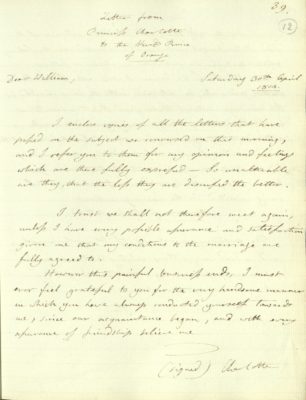 39.
12
Letter from
Princess Charlotte
to the Hered. Prince
of Orange
Dear William,
Saturday 30th April
1814.
I enclose copies of all the letters that have
passed on the subject we conversed on that morning,
and I refer you to them for my opinions and feelings
which are there fully expressed – So unalterable
are they, that the less they are discussed the better.
I trust we shall not therefore meet again,
unless I have every possible assurance and satisfaction
given me that my conditions to the marriage are
fully agreed to.
However this painful business ends, I must
ever feel grateful to you for the very handsome manner
in which you have always conducted yourself towards
me, since our acquaintance began, and with every
assurance of friendship believe me
(signed) Charlotte